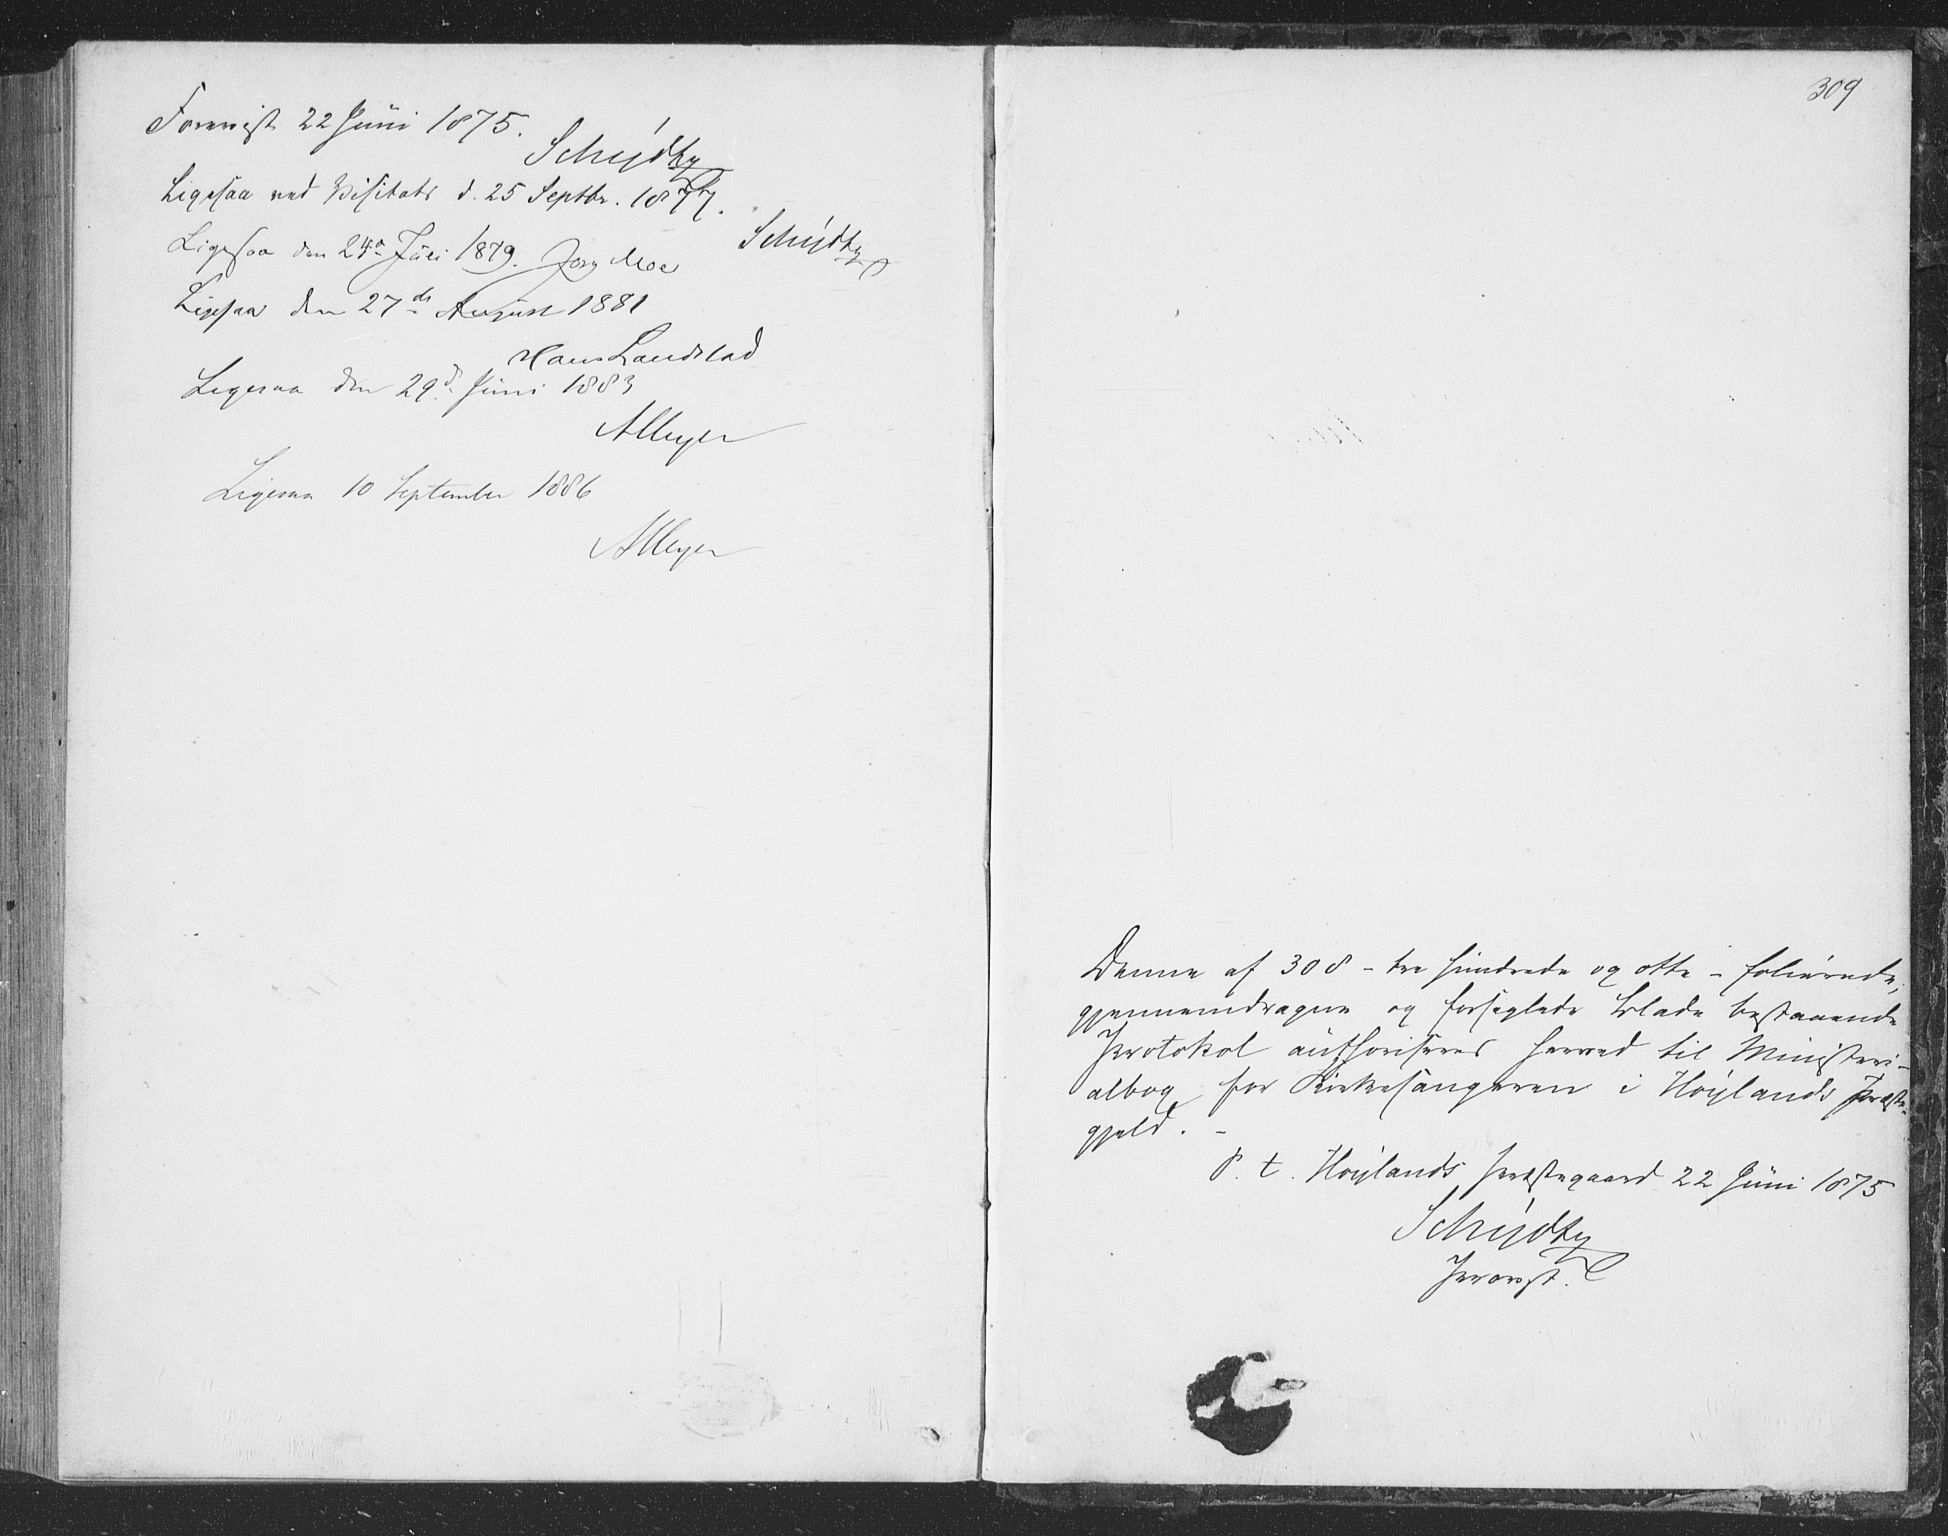 Forevist 22 Juni 1875.
Schiødtz
Ligesaa ved Visitats d. 25 Septbr. 1877.
Schiødtz
Ligesaa den 24de Juli 1879. Jørg Moe
Ligesaa den 27de August 1881
Hans Landstad
Ligesaa den 29d. Juni 1883
AMeyer
Ligesaa 10 September 1886
AMeyer
309
Denne af 308 – tre hundrede og otte – folierede,
gjennemdragne og forseglede Blade bestaaende
Protokol authoriseres herved til Ministeri-
albog for Kirkesangeren i Høylands Præste-
gjeld. –
P. t. Høylands Præstegaard 22 Juni 1875
Schiødtz
Provst.